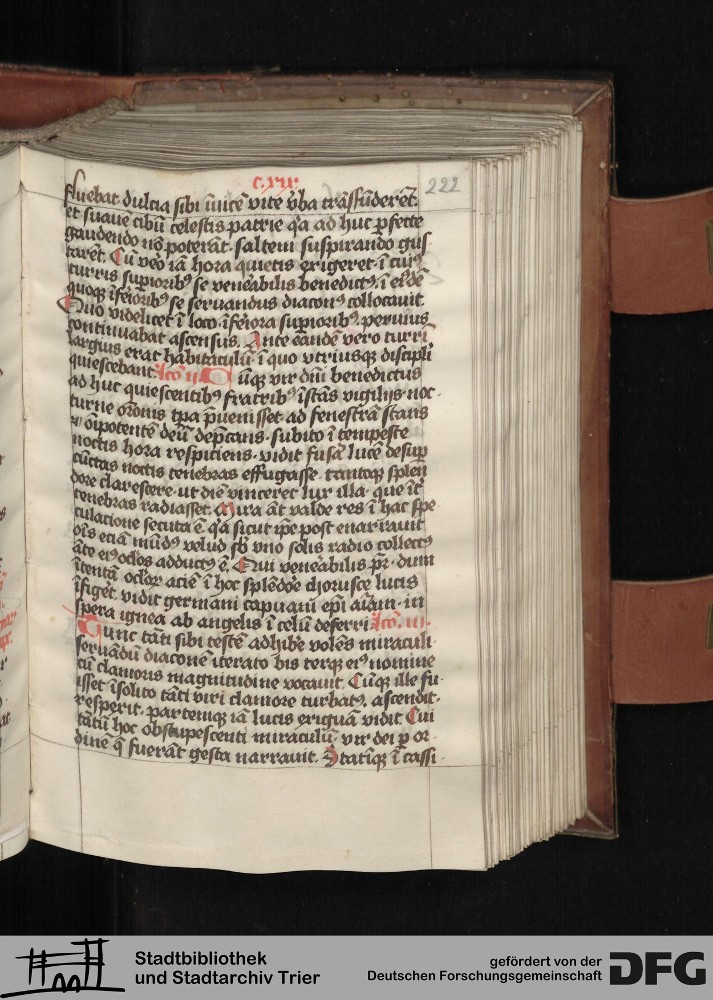 222
fluebat dulcia sibi īuicē vite v̓ba trāsfūderēt.
et suaue cibū celestis patrie q̓a ad huc ꝑfecte
gaudendo nō poterāt. saltem suspirando gus
tarēt. Cū veͦo iā hora quietis exigeret. ī cuiꝰ
turris supioribꝰ se venẻabilis benedictꝰ. ī eiꝰdē
quoqꝫ īfẻioribꝰ se seruandus diaconꝰ collocauit.
Quo videlicet ī loco. īfẻiora supioribꝰ. peruius
continuabat ascensus. Ante eandē vero turrī
largius erat habitaculū. ī quo vtriusqꝫ discipli
quiescebant. Lcͦo ii. Cūqꝫ vir dnī benedictus
ad huc quiescentibꝰ fratribꝰ īstās vigilijs noc
turne orͦonis tꝑa p̄uenisset. ad fenestrā stans
oīpotentē deū dep̄cans. subito ī tempeste
noctis hora respiciens. vidit fusā lucē desuꝑ
cūctas noctis tenebras effugasse. tantoqꝫ splen
dore clarescere. ut diē vinceret lux illa. que īt̓
tenebras radiasset. Mira āt valde res ī hac spe
culatione secuta ē. q̓a sicut ip̄e post enarrauit
oīs eciā mūdꝰ velud sb̓ vno solis radio collectꝰ
āte eiꝰ oc̄los adductꝰ ē. Qui venẻabilis pr̄. dum
ītentā oc̄lorꝫ aciē ī hoc splēdoͤe choruste lucis
īfiget. vidit germani capuani ep̄i aīam. in
spera ignea ab angelis ī celū deferri. Lcͦo. iii.
Tunc tāti sibi testē adhibẻ volēs miraculi.
seruādū diaconē iterato bis terqꝫ eiꝰ nomine
cū clamoris magnitudine vocauit. Cūqꝫ ille fu
isset īsolito tāti viri clamore turbatꝰ. ascendit.
resperit. partemqꝫ iā lucis exiguā vidit. Cui
tātū hoc obstupescenti miraculū. vir dei ꝑ or
dinē q̄ fuerāt gesta narrauit. Statīqꝫ ī cassi
Stadtbibliothek
und Stadtarchiv Trier
gefördert von der
Deutschen Forschungsgemeinschaft
DFG